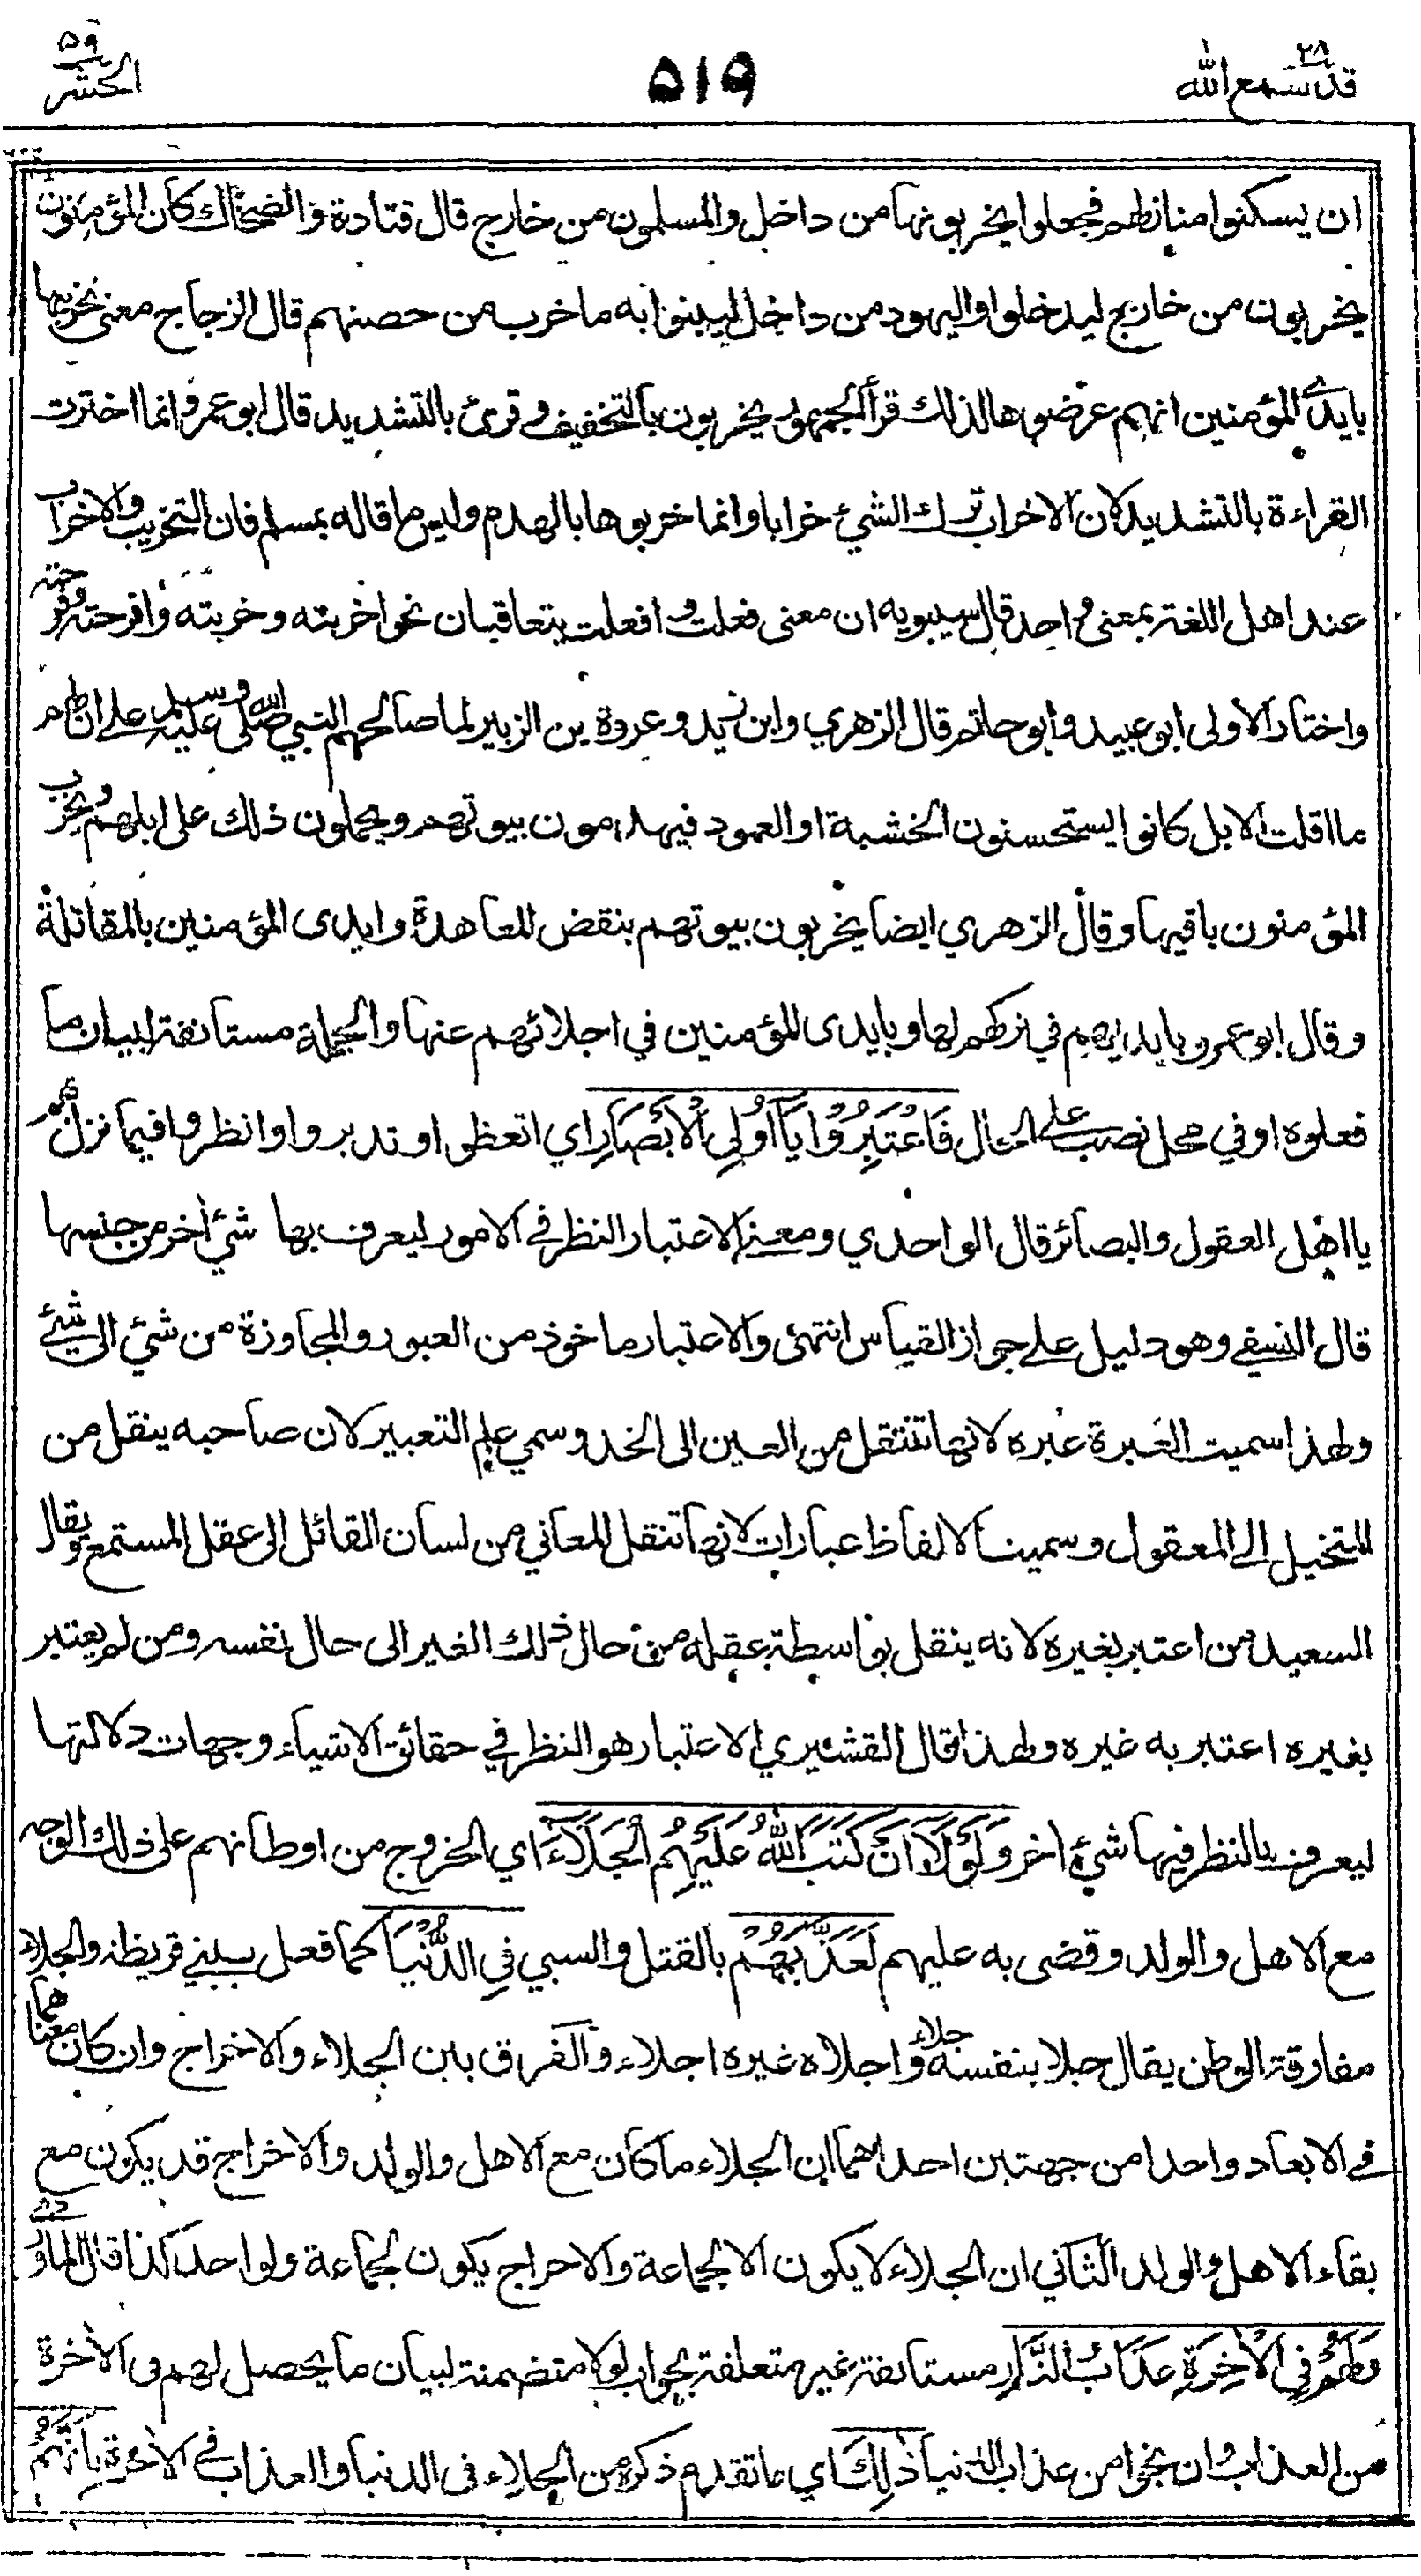 قد سمع الله ٢٨
٥١٩
الحشر ٥٩
ان يسكنوا منازلهم فجعلوا يخربونها من داخل والمسلمون من خارج قال قتادة والضحاك كان المؤمنون
يخربون من خارج ليدخلوا واليهود من داخل ليبنوا به ما خرب من حصنهم قال الزجاج معنى تخريبها
بايدي المؤمنين انهم عرضوها لذلك قرأ الجمهور يخربون بالتخفيف وقرئ بالتشديد قال ابو عمرو وانما اخترت
القراءة بالتشديد لان الاخراب ترك الشيء خرابا وانما خربوها بالهدم وليس ما قاله بمسلم فان التخريب والاخراب
عند اهل اللغة بمعنى واحد قال سيبويه ان معنى فعلت وافعلت يتعاقبان نحو اخربته وخربته وافرحته وفرحته
واختار الاولى ابو عبيد وابو حاتم قال الزهري وابن زيد وعروة بن الزبير لما صالحهم النبي صلى الله عليه وسلم على ان لهم
ما اقلت الابل كانوا يستحسنون الخشبة او العمود فيهدمون بيوتهم ويحملون ذلك على ابلهم ويخرب
المؤمنون باقيها وقال الزهري ايضا يخربون بيوتهم بنقض المعاهدة وايدى المؤمنين بالمقاتلة
وقال ابو عمرو بايديهم في تركهم لها وبايدى المؤمنين في اجلائهم عنها والجملة مستانفة لبيان ما
فعلوه او في محل نصب على الحال فَاعْتَبِرُوْا يَآ اُولِي الْاَبْصَارِ اي اتعظوا وتدبروا وانظروا فيما نزل بهم
يا اهل العقول والبصائر قال الواحدي ومعنى الاعتبار النظر في الامور ليعرف بها شيء اٰخر من جنسها
قال النسفي وهو دليل على جواز القياس انتهى والاعتبار ماخوذ من العبور والمجاوزة من شيء الى شيء
ولهذا سميت العَبرة عبره لانها تنتقل من العين الى الخد وسمي علم التعبير لان صاحبه ينقل من
المتخيل الى المعقول وسميت الالفاظ عبارات لانها تنقل المعاني من لسان القائل الى عقل المستمع ويقال
السعيد من اعتبر بغيره لانه ينقل بواسطة عقله من حال ذلك الغير الى حال نفسه ومن لم يعتبر
بغيره اعتبر به غيره ولهذا قال القشيري الاعتبار هو النظر في حقائق الاشياء وجهات دلالتها
ليعرف بالنظر فيها شيء اخر وَلَوْلَا اَنْ كَتَبَ اللّٰهُ عَلَيْهِمُ الْجَلَاءَ اي الخروج من اوطانهم على ذلك الوجه
مع الاهل والولد وقضى به عليهم لَعَذَّبَهُمْ بالقتل والسبي فِي الدُّنْيَا كما فعل ببني قريظة والجلاء
مفارقة الوطن يقال جلا بنفسه جلاء واجلاه غيره اجلاء والفرق بين الجلاء والاخراج وان كان معناهما
في الابعاد واحدا من جهتين احداهما ان الجلاء ما كان مع الاهل والولد والاخراج قد يكون مع
بقاء الاهل والولد الثاني ان الجلاء لا يكون الا لجماعة والاخراج يكون لجماعة ولواحد كذا قال الماوردي
وَلَهُمْ فِي الْاٰخِرَةِ عَذَابُ النَّارِ مستانفة غير متعلقة بجواب لولا متضمنة لبيان ما يحصل لهم في الاٰخرة
من العذاب وان نجوا من عذاب الدنيا ذٰلِكَ اي ما تقدم ذكره من الجلاء في الدنيا والعذاب في الاٰخرة بِاَنَّهُمْ